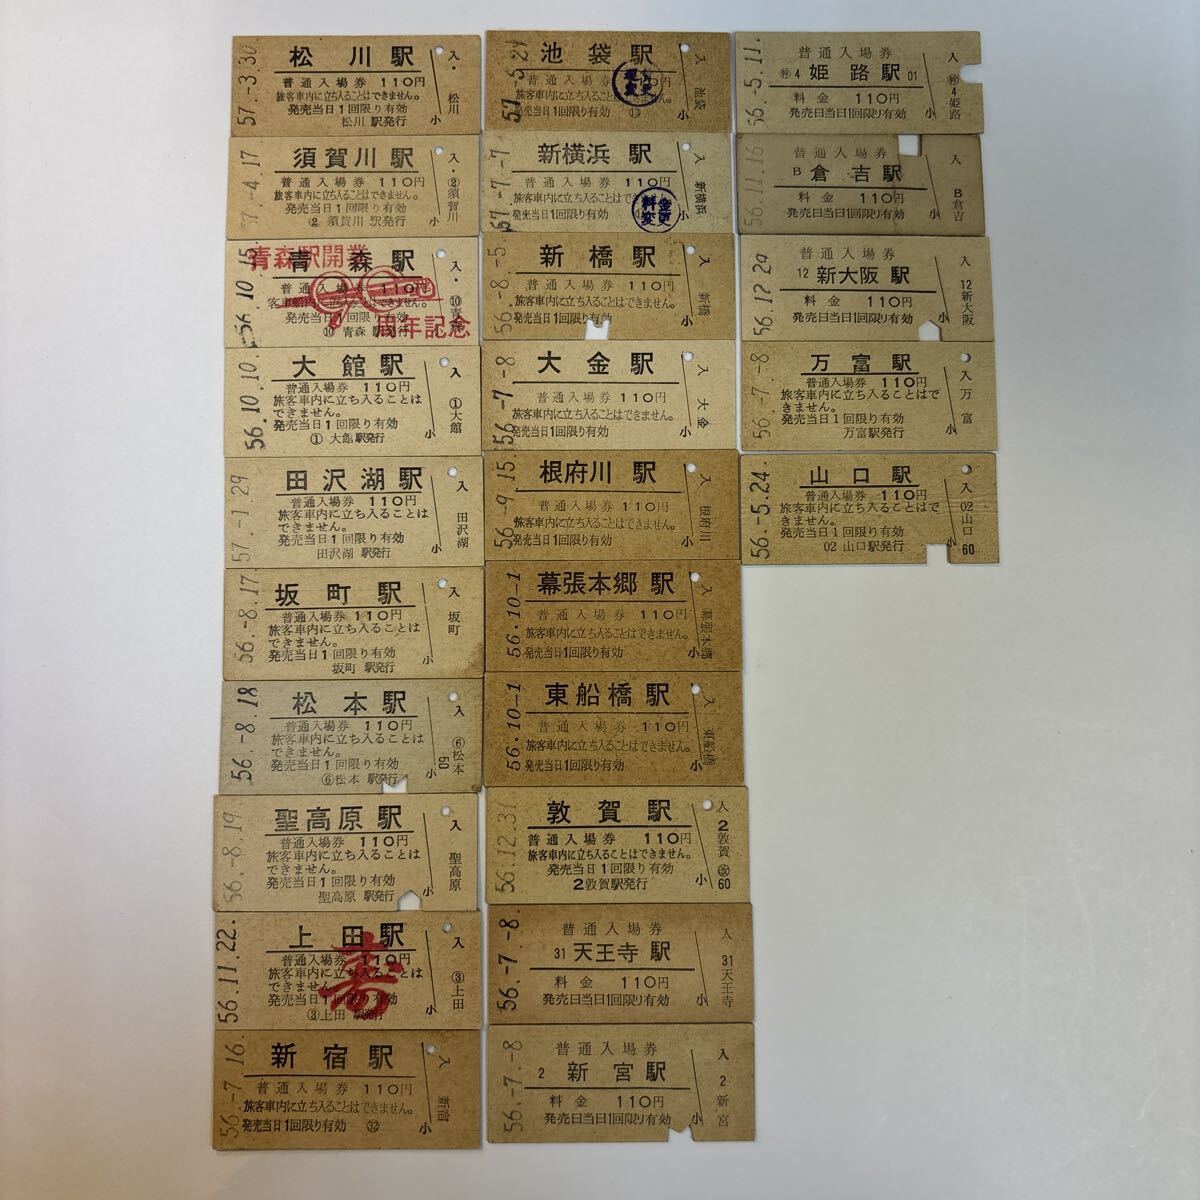 57.-3.30
松川駅
普通入場券 110円
旅客車内に立ち入ることはできません。
発売当日1回限り有効
松川 駅発行
入・松川
小
7.-4.17
須賀川駅
普通入場券 110円
旅客車内に立ち入ることはできません。
発売当日1回限り有効
② 須賀川 駅発行
入・②須賀川
小
56.10.15
青森駅
青森駅開業
周年記念
普通入場券 110円
客車船内に立ち入ることはできません。
発売当日1回限り有効
⑩ 青森 駅発行
入・⑩青森
小
56.10.10
大館駅
普通入場券 110円
旅客車内に立ち入ることは
できません。
発売当日1回限り有効
① 大館駅発行
入 ①大館
小
57.-1.29
田沢湖駅
普通入場券 110円
旅客車内に立ち入ることは
できません。
発売当日1回限り有効
田沢湖 駅発行
入 田沢湖
小
56.-8.17
坂町駅
普通入場券 110円
旅客車内に立ち入ることは
できません。
発売当日1回限り有効
坂町 駅発行
入 坂町
小
56.-8.18
松本駅
普通入場券 110円
旅客車内に立ち入ることは
できません。
発売当日1回限り有効
⑥松本 駅発行
入 ⑥松本
50
小
56.-8.19
聖高原駅
普通入場券 110円
旅客車内に立ち入ることは
できません。
発売当日1回限り有効
聖高原 駅発行
入 聖高原
小
56.11.22.
上田駅
普通入場券 110円
旅客車内に立ち入ることは
できません。
発売当日1回限り有効
③上田 駅発行
入 ③上田
小
56.-7.16
新宿駅
普通入場券 110円
旅客車内に立ち入ることはできません。
発売当日1回限り有効 ㉜
入 新宿
小
57.-5.29
池袋駅
普通入場券 110円
旅客車内に立ち入ることはできません。
発売当日1回限り有効
入 池袋
小
57.-7.-7
新横浜駅
普通入場券 110円
料金変更
旅客車内に立ち入ることはできません。
発売当日1回限り有効
入 新横浜
小
56.-8.-5
新橋駅
普通入場券 110円
旅客車内に立ち入ることはできません。
発売当日1回限り有効
入 新橋
小
56.-7.-8
大金駅
普通入場券 110円
旅客車内に立ち入ることはできません。
発売当日1回限り有効
入 大金
小
56.-9.15
根府川駅
普通入場券 110円
旅客車内に立ち入ることはできません。
発売当日1回限り有効
入 根府川
小
56.10-1
幕張本郷駅
普通入場券 110円
旅客車内に立ち入ることはできません。
発売当日1回限り有効
入 幕張本郷
小
56.10-1
東船橋駅
普通入場券 110円
旅客車内に立ち入ることはできません。
発売当日1回限り有効
入 東船橋
小
56.12.31
敦賀駅
普通入場券 110円
旅客車内に立ち入ることはできません。
発売当日1回限り有効
2敦賀駅発行
入 2敦賀
60
小
56.-7.-8.
普通入場券
31 天王寺駅
料金 110円
発売日当日1回限り有効
入 31天王寺
小
56.-7.-8
普通入場券
2 新宮駅
料金 110円
発売日当日1回限り有効
入 2新宮
小
56.-5.11.
普通入場券
4 姫路駅 01
料金 110円
発売日当日1回限り有効
入 4姫路
小
56.11.16
普通入場券
B 倉吉駅
料金 110円
発売日当日1回限り有効
入 B倉吉
小
56.12.29
普通入場券
12 新大阪駅
料金 110円
発売日当日1回限り有効
入 12新大阪
小
56.-7.-8
万富駅
普通入場券 110円
旅客車内に立ち入ることはで
きません。
発売当日1回限り有効
万富駅発行
入 万富
小
56.-5.24.
山口駅
普通入場券 110円
旅客車内に立ち入ることはで
きません。
発売当日1回限り有効
02 山口駅発行
入 02山口
小 60